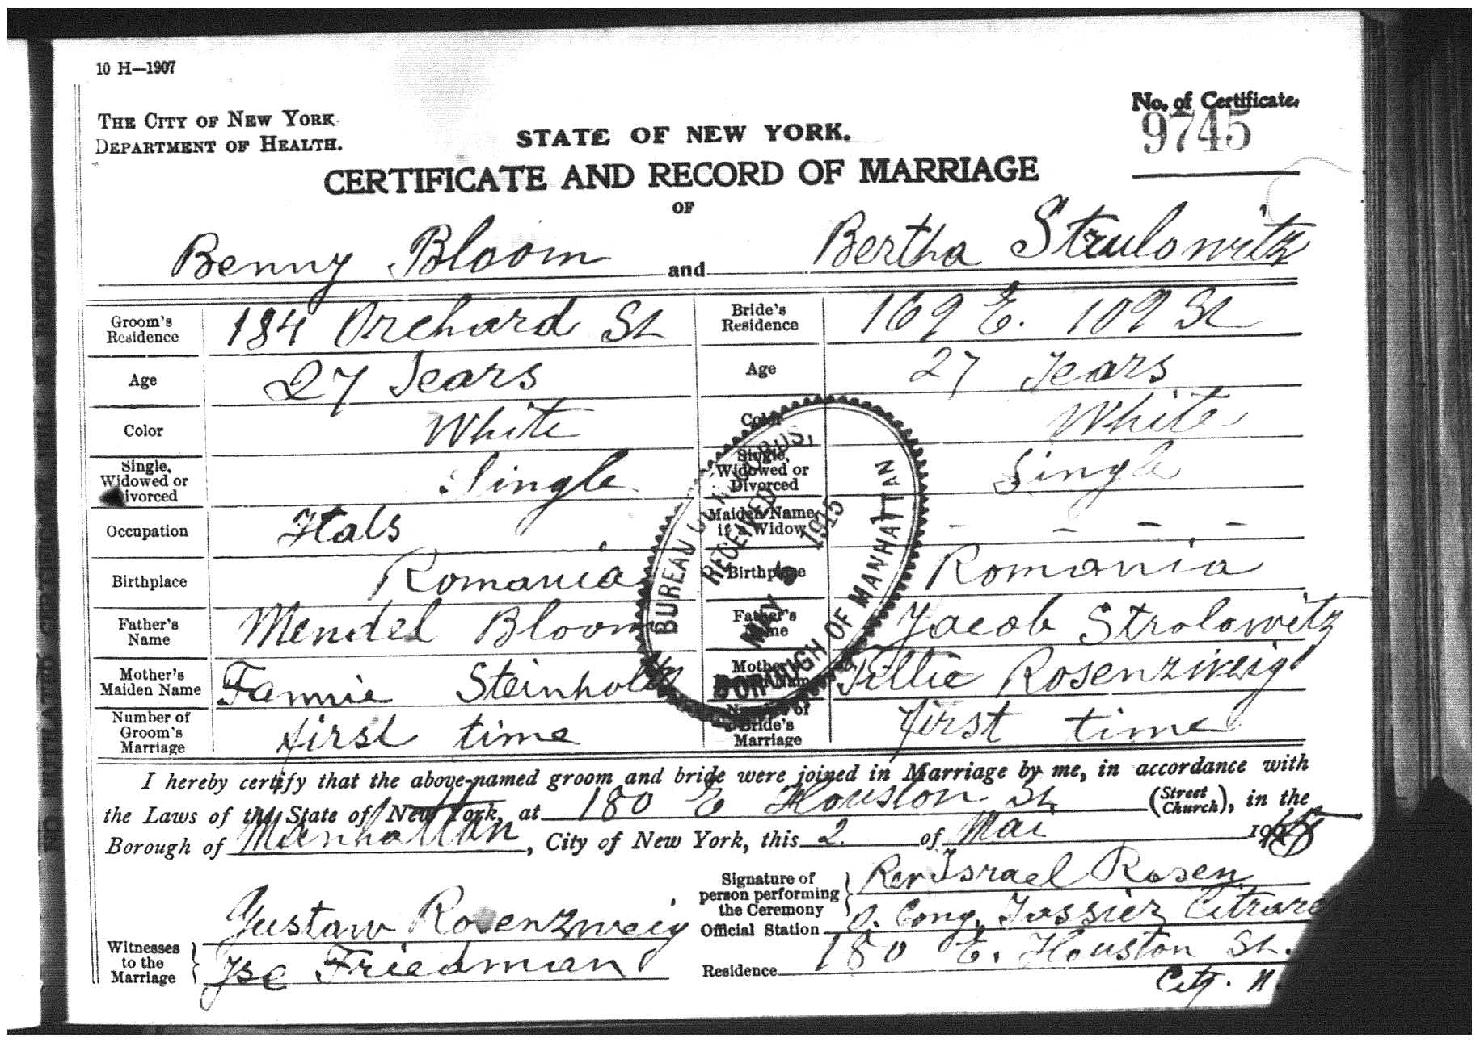 10 H—1907
THE CITY OF NEW YORK
DEPARTMENT OF HEALTH.
No. of Certificate.
9745
STATE OF NEW YORK.
CERTIFICATE AND RECORD OF MARRIAGE
OF
Benny Bloom and Bertha Strulowitz
Groom's Residence 184 Orchard St Bride's Residence 169 E. 109 St
Age 27 Years Age 27 Years
Color White Color White
Single, Widowed or Divorced Single Single, Widowed or Divorced Single
Occupation Hats Maiden Name, if a Widow — — —
Birthplace Romania Birthplace Romania
Father's Name Mendel Bloom Father's Name Jacob Strolowitz
Mother's Maiden Name Fannie Mother's Maiden Name Tillie Rosenzweig
Number of Groom's Marriage first time Number of Bride's Marriage first time
BUREAU RECORDS,
RECEIVED
MAY 1915
BOROUGH OF MANHATTAN
I hereby certify that the above-named groom and bride were joined in Marriage by me, in accordance with
the Laws of the State of New York, at 180 E Houston St (Street Church), in the
Borough of Manhattan, City of New York, this 2. of Mai 19
Signature of person performing the Ceremony Rev Israel Rosen
Official Station Cong.
Residence 180 E. Houston St.
City. N.
Witnesses to the Marriage Gustav Rosenzweig
Friedman